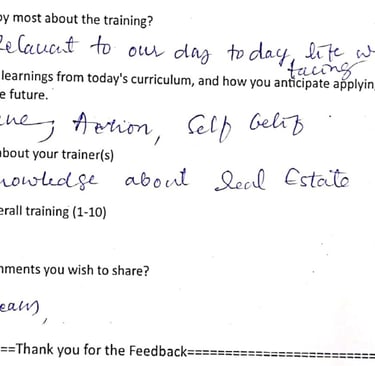 oy most about the training?
Relavant to our day to day life w
facing
learnings from today's curriculum, and how you anticipate applyin
e future.
Action, Self belif.
about your trainer(s)
nowledge about Real Estate
erall training (1-10)
nments you wish to share?
==Thank you for the Feedback==========================